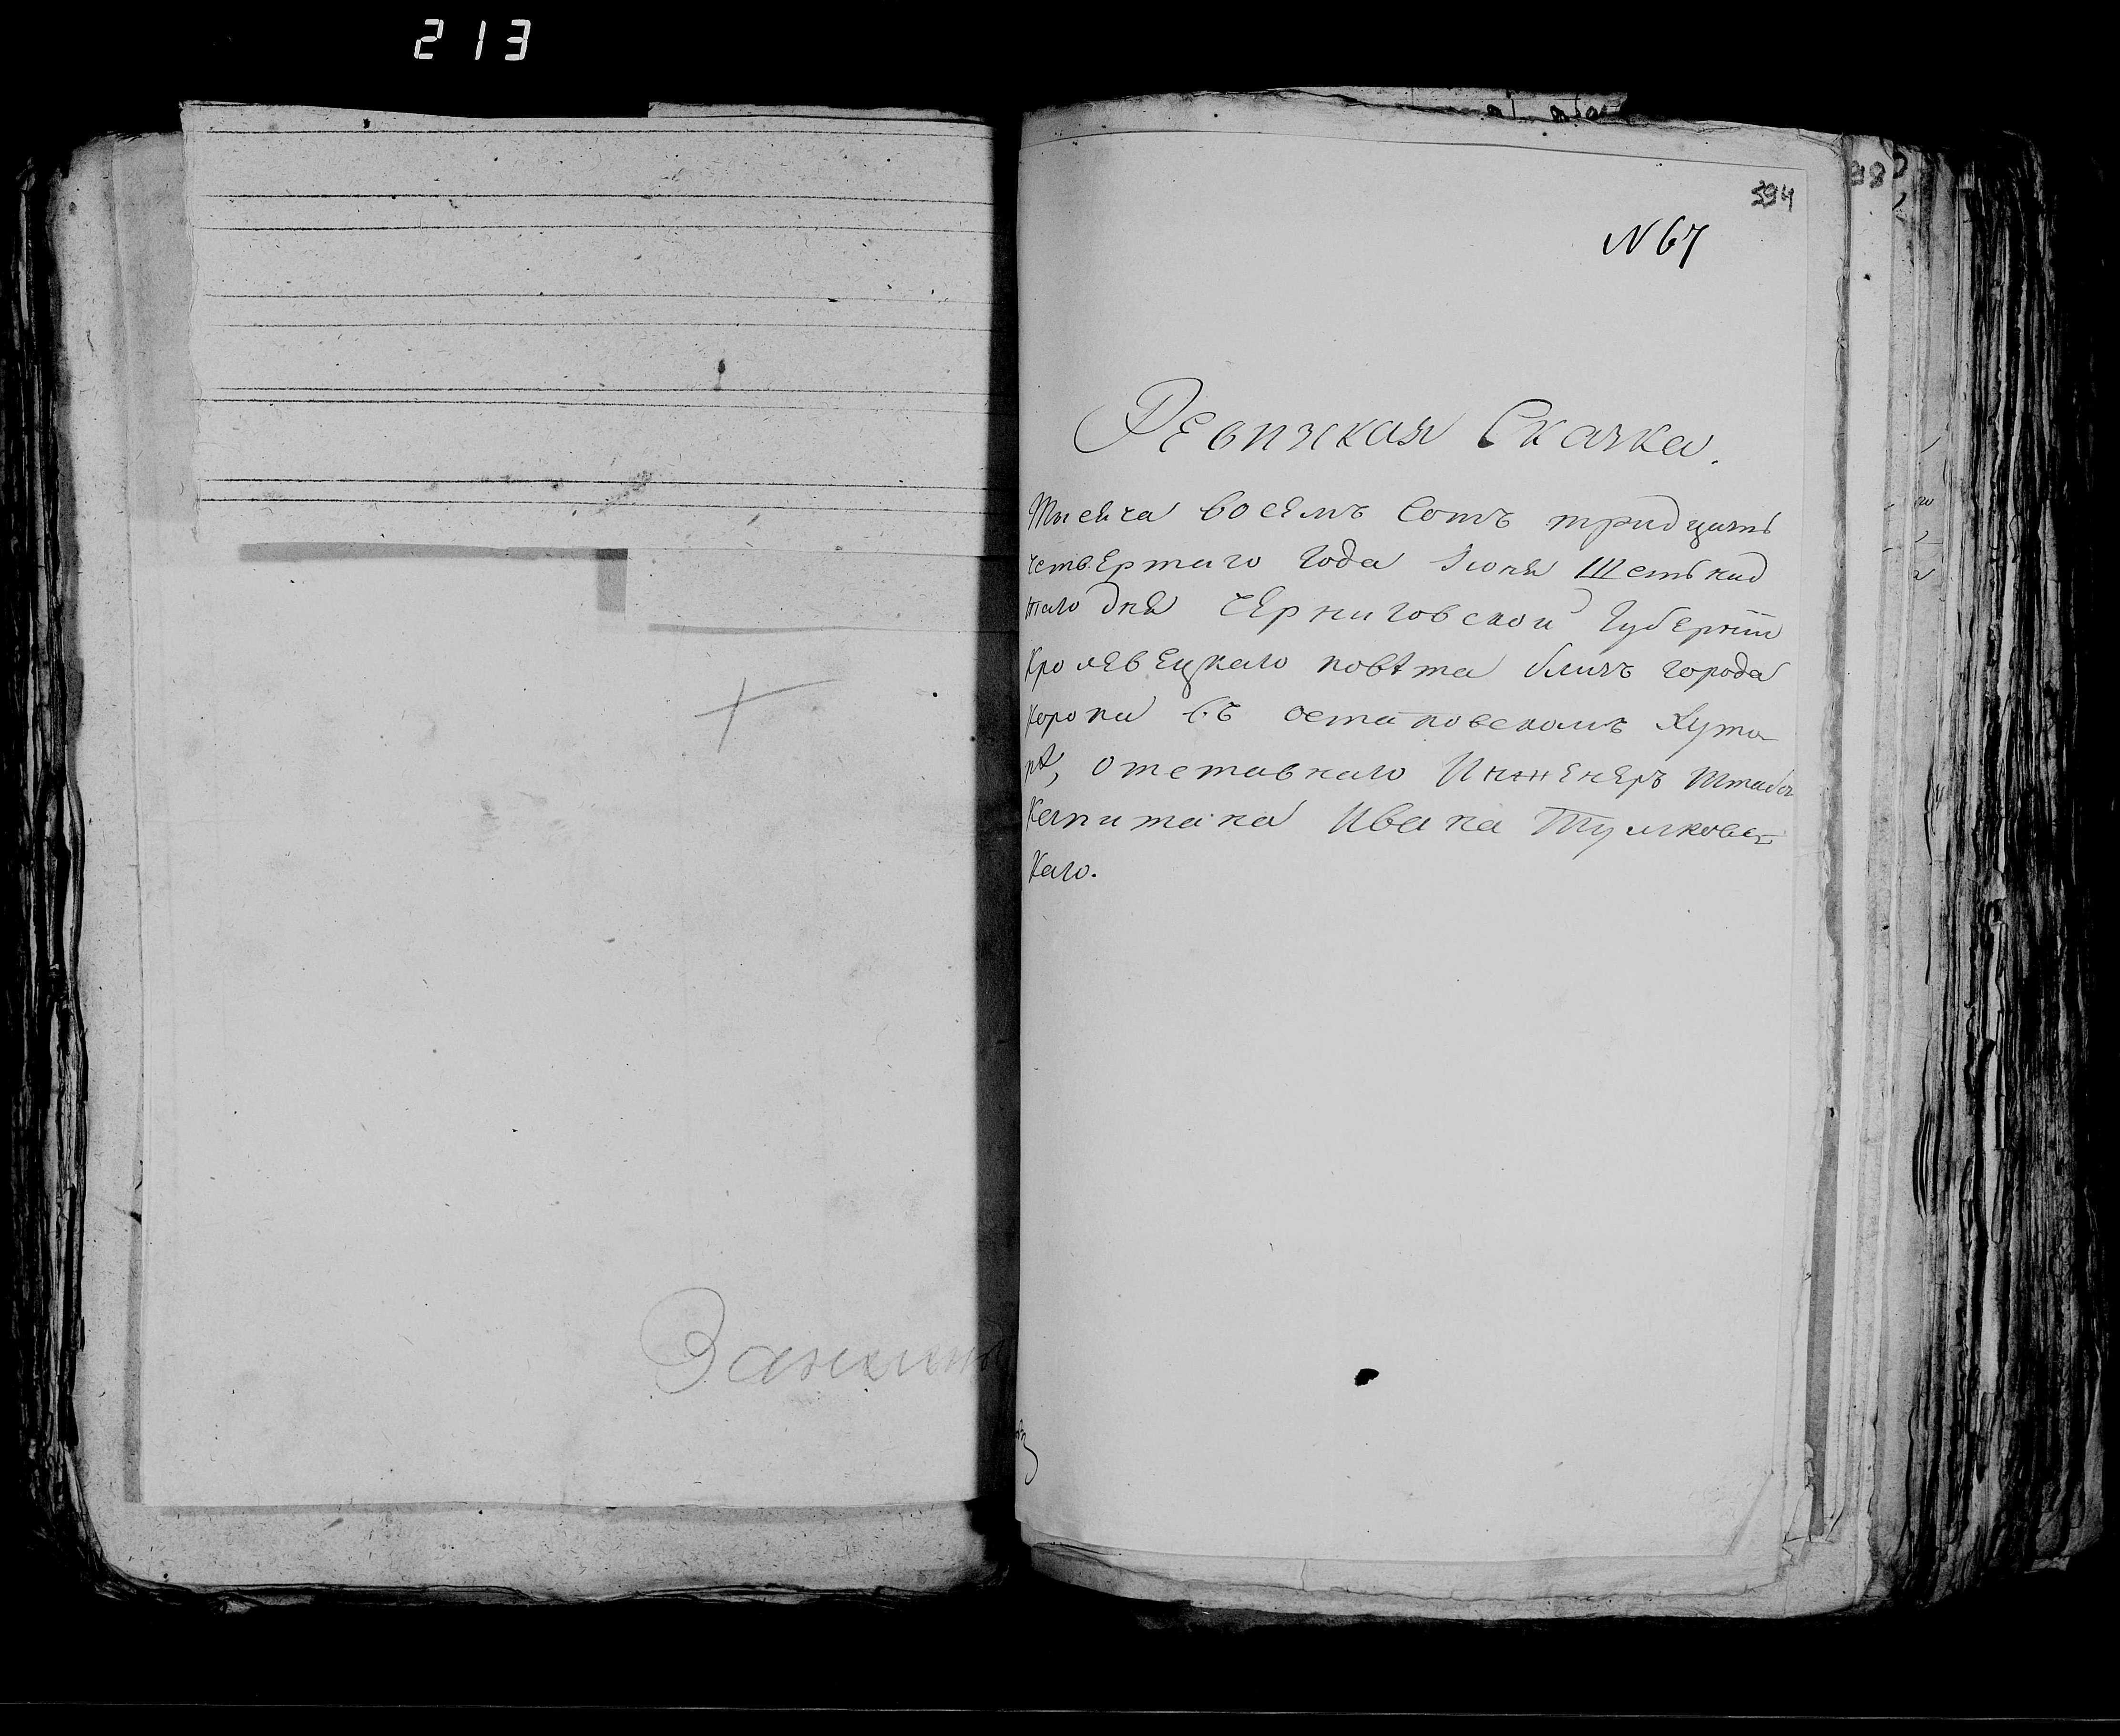 213
394
N 67
Ревизкая Сказка.
Тысяча восемъ Сотъ тридцать
четвертаго года Iюня Шестьнад
таго дня Черниговской Губернiи
Кролевецкаго повѣта близъ города
Коропа въ Остаповскомъ Хуто-
рѣ, отставнаго Инженеръ Штабсъ
Капитана Ивана Тумковс-
Каго.